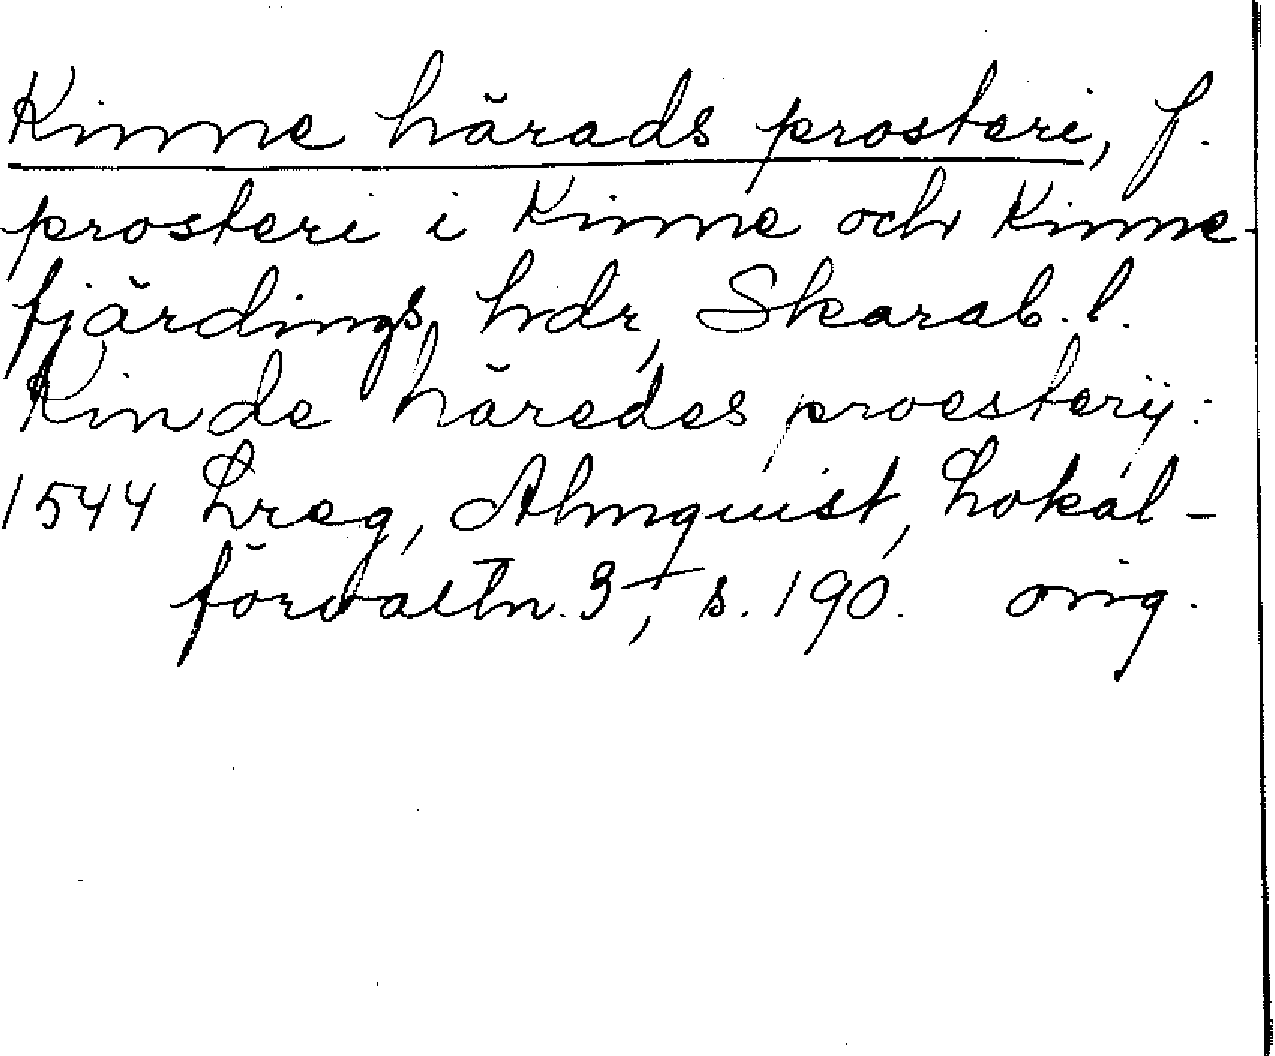 Kinne härads prosteri, f.
prosteri i Kinne och Kinne-
fjärdings hdr, Skarab. l.
Kinde häredes proesterij:
1544 Lreg, Almquist, Lokal-
förvaltn. 3, s. 190. orig.